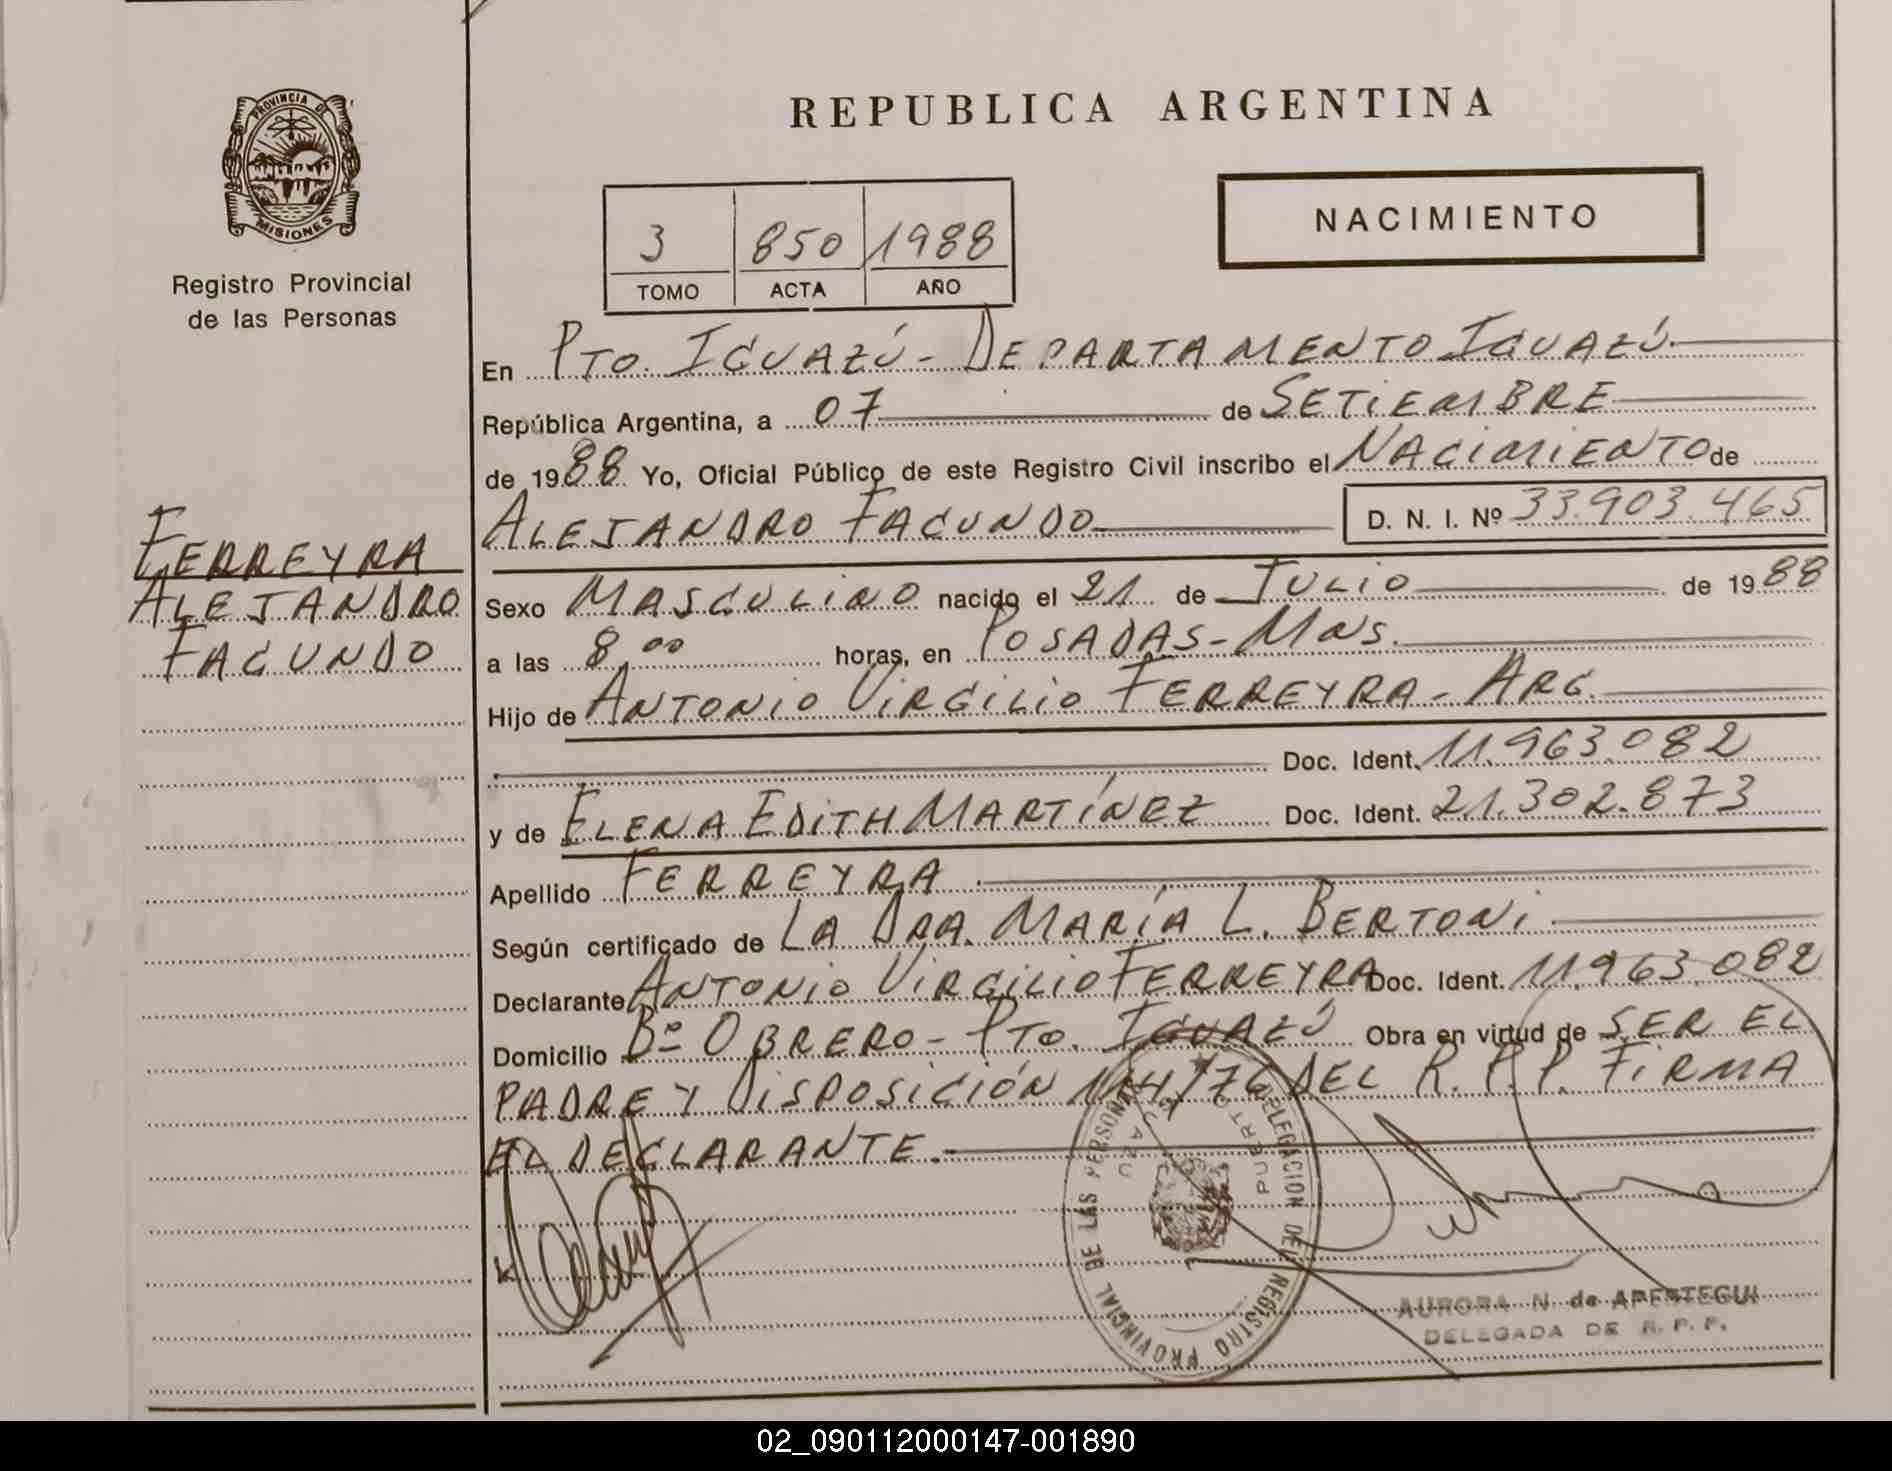 PROVINCIA DE
MISIONES
Registro Provincial
de las Personas
FERREYRA
ALEJANDRO
FACUNDO
REPUBLICA ARGENTINA
3 850 1988
TOMO ACTA AÑO
NACIMIENTO
En PTO. IGUAZÚ - DEPARTAMENTO IGUAZÚ
República Argentina, a 07 de SETIEMBRE
de 1988 Yo, Oficial Público de este Registro Civil inscribo el NACIMIENTO de
ALEJANDRO FACUNDO D. N. I. Nº 33.903.465
Sexo MASCULINO nacido el 21 de JULIO de 1988
a las 8,00 horas, en POSADAS - Mns.
Hijo de ANTONIO VIRGILIO FERREYRA - ARG.
Doc. Ident. 11.963.082
y de ELENA EDITH MARTÍNEZ Doc. Ident. 21.302.873
Apellido FERREYRA
Según certificado de LA DRA. MARÍA L. BERTONI
Declarante ANTONIO VIRGILIO FERREYRA Doc. Ident. 11.963.082
Domicilio Bº OBRERO - PTO. IGUAZÚ Obra en virtud de SER EL
PADRE Y DISPOSICIÓN 114/76 DEL R. P. P. FIRMA
EL DECLARANTE.
DELEGACION DEL REGISTRO PROVINCIAL DE LAS PERSONAS
PUERTO
AURORA N. de APESTEGUI
DELEGADA DE R. P. P.
02_090112000147-001890